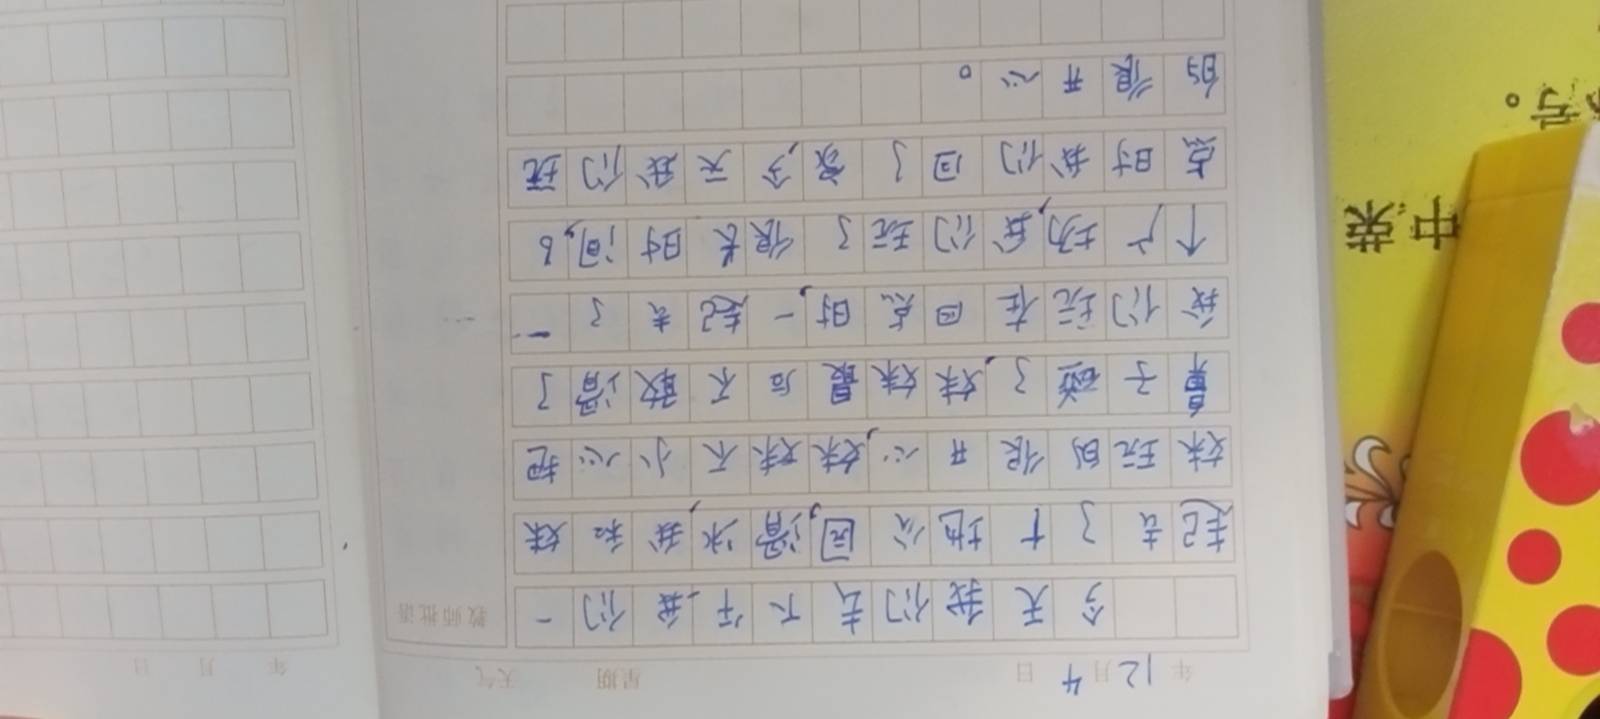 年12月4日 星期 天气
教师批语
今天我们去下午,我们一
起去了十地公园,滑冰,我和妹
妹玩的很开心,妹妹不小心把
鼻子碰了,妹妹最后不敢滑了
我们玩在四点时,一起去了一
个广场,我们玩了很长时间,9
点时我们回了家,今天我们玩
的很开心。
年 月 日
中荣
号。